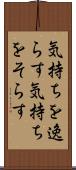 気持ちを逸
らす気持ち
をそらす